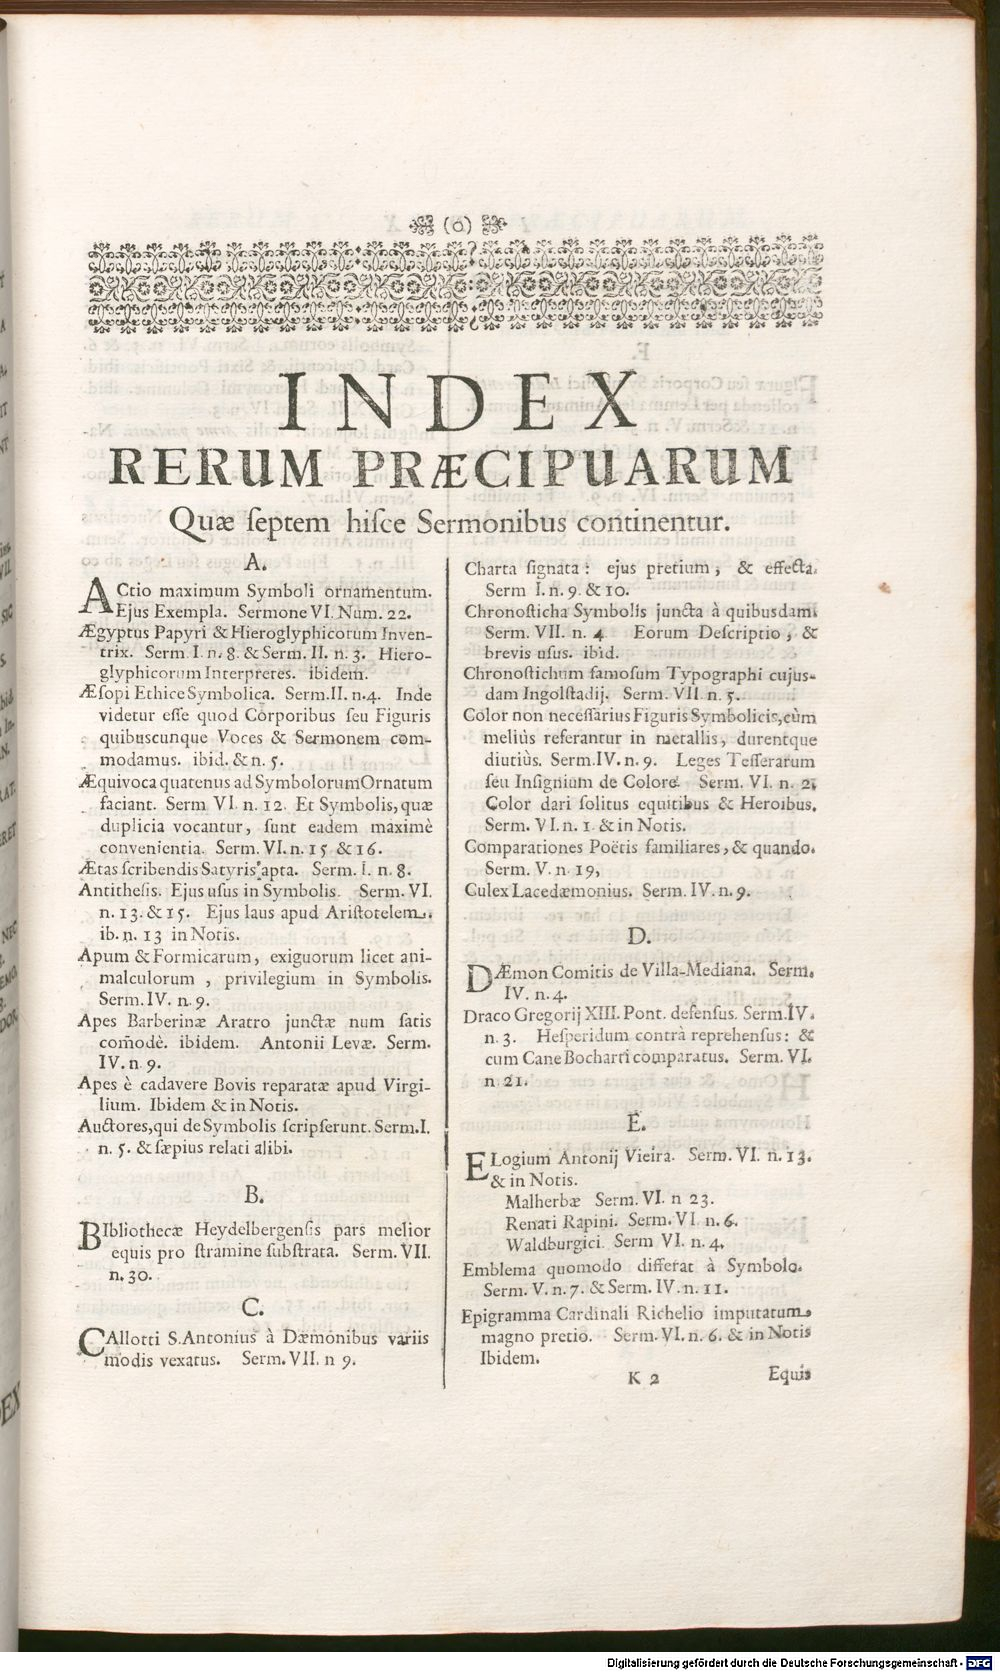 (o)
INDEX
RERUM PRÆCIPUARUM
Quæ ſeptem hiſce Sermonibus continentur.
A.
ACtio maximum Symboli ornamentum.
Ejus Exempla. Sermone VI. Num. 22.
Ægyptus Papyri & Hieroglyphicorum Inven-
trix. Serm. I. n. 8. & Serm. II. n. 3. Hiero-
glyphicorum Interpretes. ibidem.
Æſopi Ethice Symbolica. Serm. II. n. 4. Inde
videtur eſſe quod Corporibus ſeu Figuris
quibuscunque Voces & Sermonem com-
modamus. ibid. & n. 5.
Æquivoca quatenus ad Symbolorum Ornatum
faciant. Serm VI. n. 12. Et Symbolis, quæ
duplicia vocantur, ſunt eadem maximè
convenientia. Serm. VI. n. 15 & 16.
Ætas ſcribendis Satyris apta. Serm. I. n. 8.
Antitheſis. Ejus uſus in Symbolis. Serm. VI.
n. 13. & 15. Ejus laus apud Ariſtotelem.
ib. n. 13 in Notis.
Apum & Formicarum, exiguorum licet ani-
malculorum, privilegium in Symbolis.
Serm. IV. n. 9.
Apes Barberinæ Aratro junctæ num ſatis
com̃odè. ibidem. Antonii Levæ. Serm.
IV. n. 9.
Apes è cadavere Bovis reparatæ apud Virgi-
lium. Ibidem & in Notis.
Auctores, qui de Symbolis ſcripſerunt. Serm. I.
n. 5. & ſæpius relati alibi.
B.
BIbliothecæ Heydelbergenſis pars melior
equis pro ſtramine ſubſtrata. Serm. VII.
n. 30.
C.
CAllotti S. Antonius à Dæmonibus variis
modis vexatus. Serm. VII. n 9.
Charta ſignata: ejus pretium, & effecta.
Serm I. n. 9. & 10.
Chronoſticha Symbolis juncta à quibusdam.
Serm. VII. n. 4 Eorum Deſcriptio, &
brevis uſus. ibid.
Chronoſtichum famoſum Typographi cujus-
dam Ingolſtadij. Serm. VII. n. 5.
Color non neceſſarius Figuris Symbolicis, cùm
meliùs referantur in metallis, durentque
diutiùs. Serm. IV. n. 9. Leges Teſſerarum
ſeu Inſignium de Colore. Serm. VI. n. 2.
Color dari ſolitus equitibus & Heroibus.
Serm. VI. n. 1. & in Notis.
Comparationes Poëtis familiares, & quando.
Serm. V. n. 19,
Culex Lacedæmonius. Serm. IV. n. 9.
D.
DÆmon Comitis de Villa-Mediana. Serm.
IV. n. 4.
Draco Gregorij XIII. Pont. defenſus. Serm. IV.
n. 3. Heſperidum contrà reprehenſus: &
cum Cane Bocharti comparatus. Serm. VI.
n 21.
E.
ELogium Antonij Vieira. Serm. VI. n. 13.
& in Notis.
Malherbæ Serm. VI. n 23.
Renati Rapini. Serm. VI. n. 6.
Waldburgici. Serm VI. n. 4.
Emblema quomodo differat à Symbolo.
Serm. V. n. 7. & Serm. IV. n. 11.
Epigramma Cardinali Richelio imputatum
magno pretio. Serm. VI. n. 6. & in Notis
Ibidem.
K 2
Equis
Digitalisierung gefördert durch die Deutsche Forschungsgemeinschaft - DFG